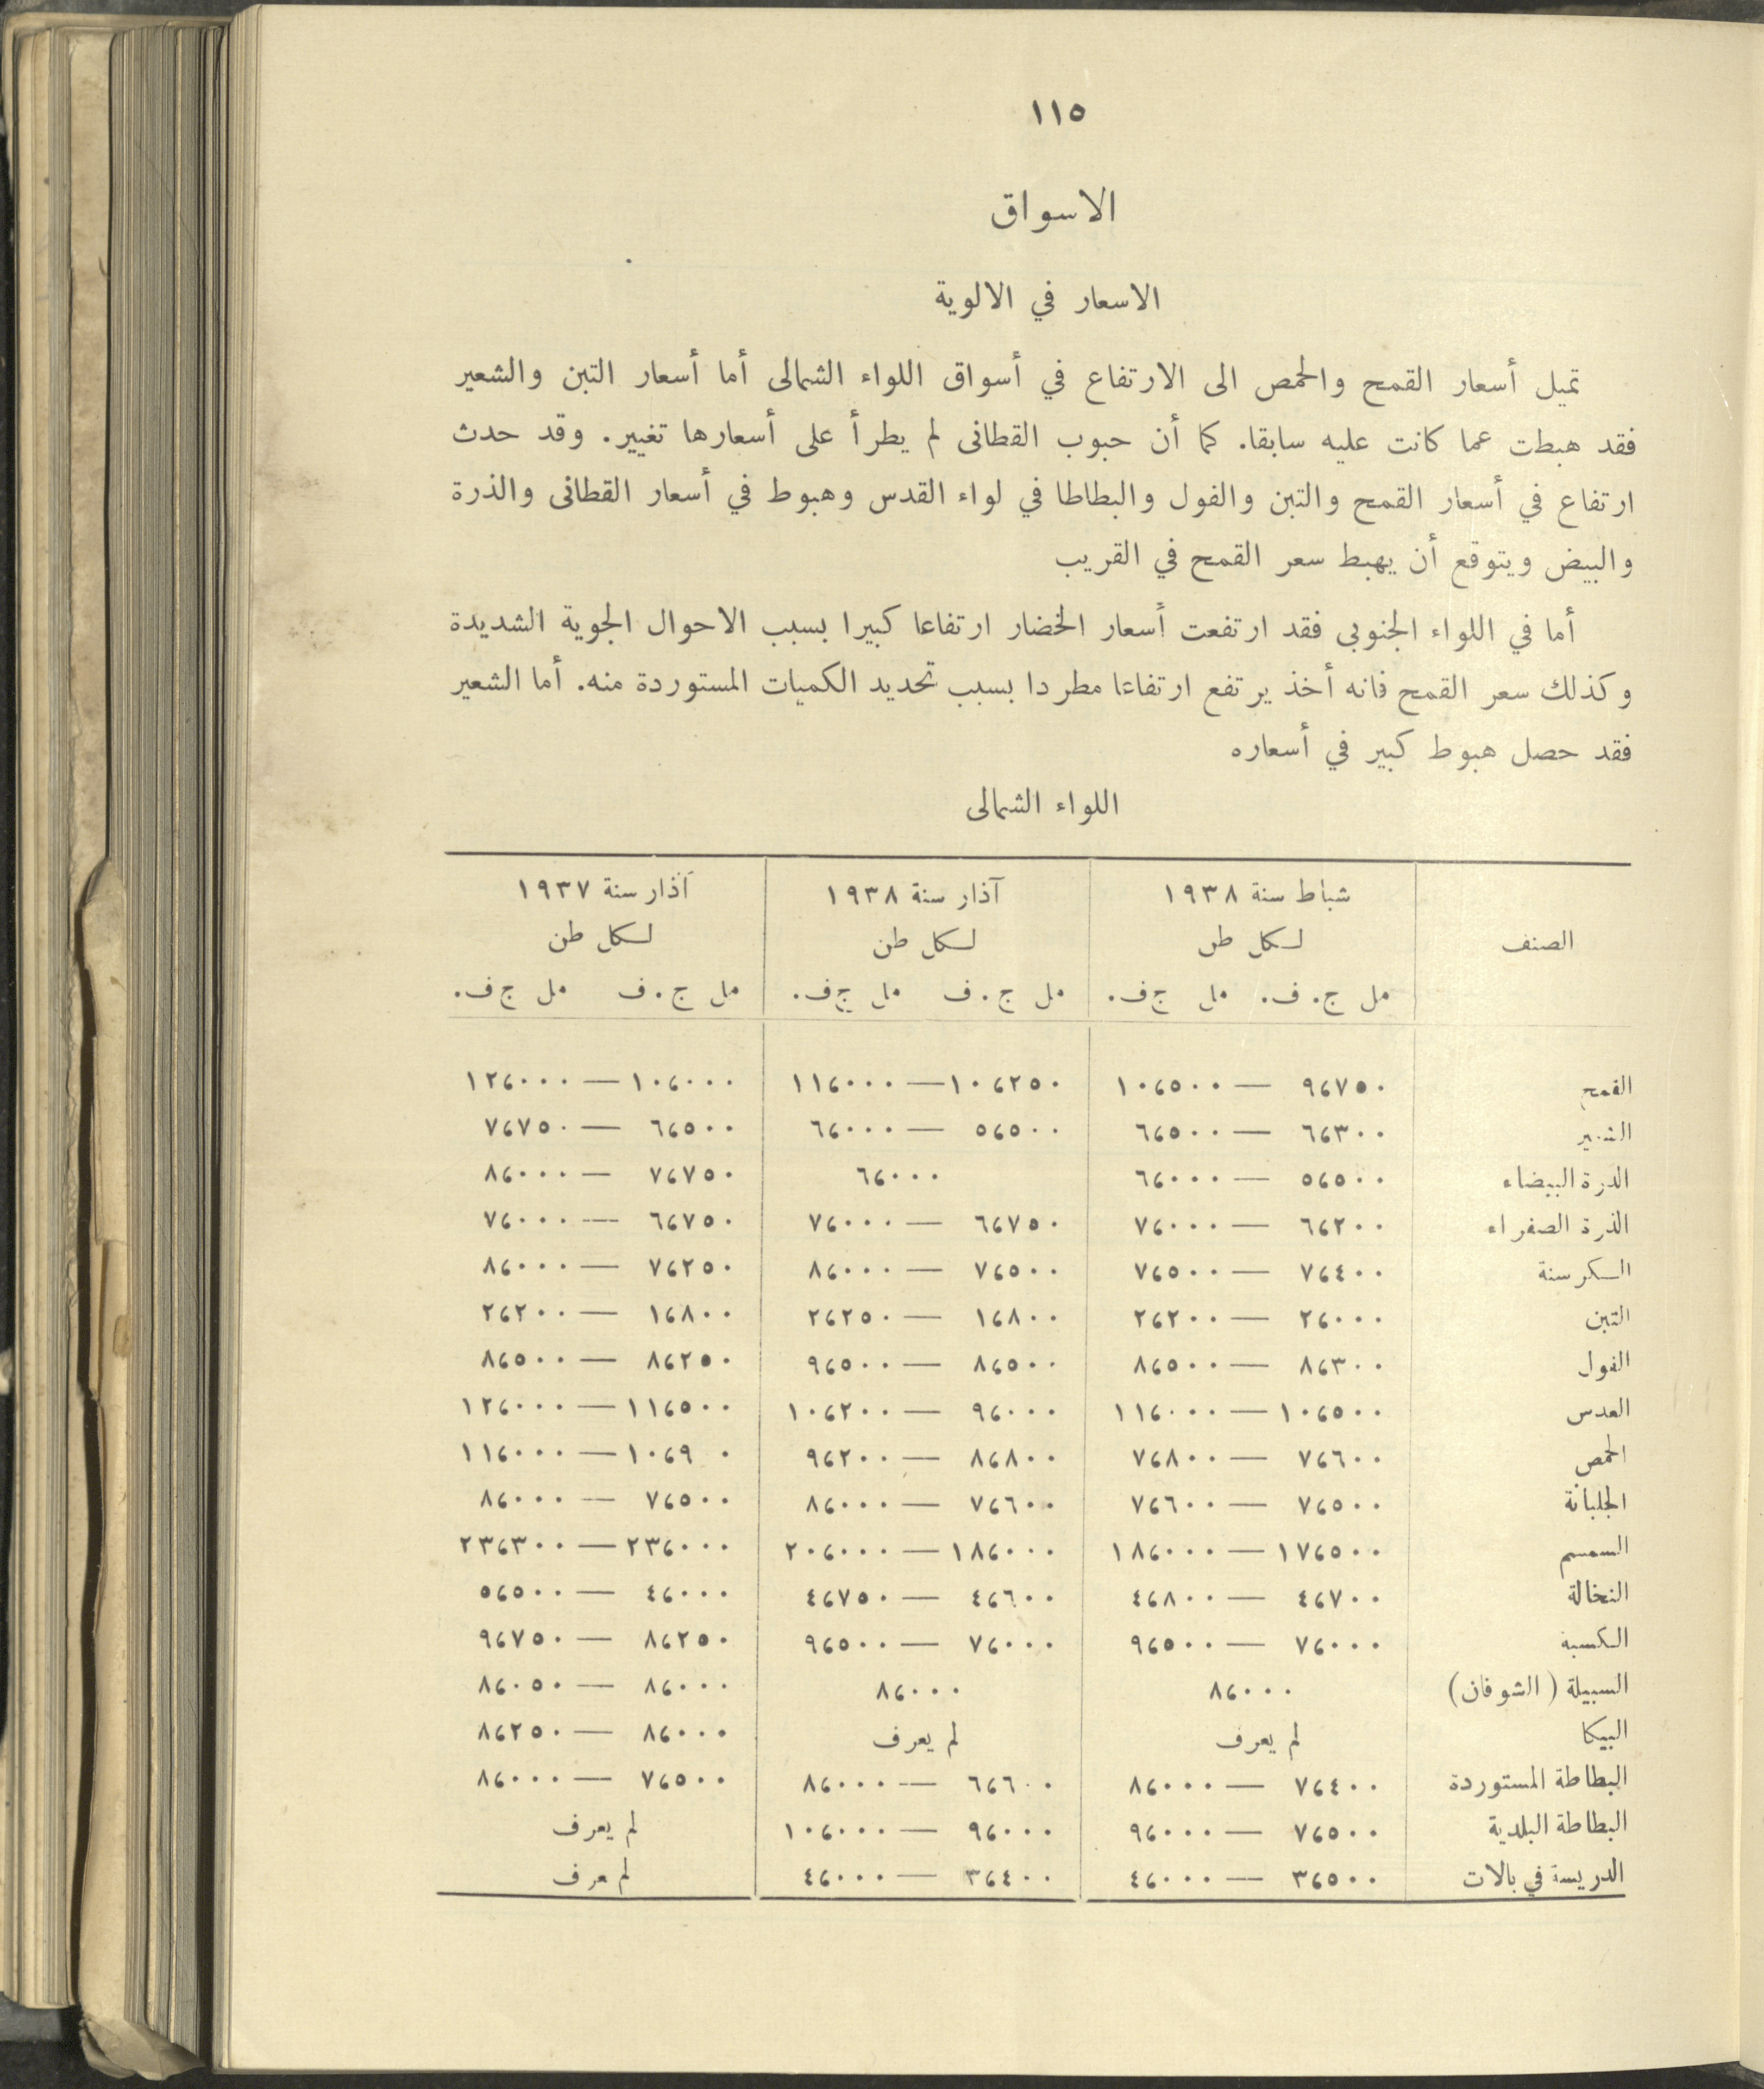 ١١٥
الاسواق
الاسعار في الالوية
تميل أسعار القمح والحمص الى الارتفاع في أسواق اللواء الشمالى أما أسعار التبن والشعير
فقد هبطت عما كانت عليه سابقا. كما أن حبوب القطانى لم يطرأ على أسعارها تغيير. وقد حدث
ارتفاع في أسعار القمح والتبن والفول والبطاطا في لواء القدس وهبوط في أسعار القطانى والذرة
والبيض ويتوقع أن يهبط سعر القمح في القريب
أما في اللواء الجنوبى فقد ارتفعت أسعار الخضار ارتفاعا كبيرا بسبب الاحوال الجوية الشديدة
وكذلك سعر القمح فانه أخذ يرتفع ارتفاعا مطردا بسبب تحديد الكميات المستوردة منه. أما الشعير
فقد حصل هبوط كبير في أسعاره
اللواء الشمالى
الصنف شباط سنة ١٩٣٨ آذار سنة ١٩٣٨ آذار سنة ١٩٣٧
لكل طن لكل طن لكل طن
مل ج. ف. مل ج ف. مل ج. ف مل ج ف. مل ج. ف مل ج ف.
القمح ٩،٧٥٠ — ١٠،٥٠٠ ١٠،٢٥٠ — ١١،٠٠٠ ١٠،٠٠٠ — ١٢،٠٠٠
الشعير ٦،٣٠٠ — ٦،٥٠٠ ٥،٥٠٠ — ٦،٠٠٠ ٦،٥٠٠ — ٧،٧٥٠
الذرة البيضاء ٥،٥٠٠ — ٦،٠٠٠ ٦،٠٠٠ ٧،٧٥٠ — ٨،٠٠٠
الذرة الصفراء ٦،٢٠٠ — ٧،٠٠٠ ٦،٧٥٠ — ٧،٠٠٠ ٦،٧٥٠ — ٧،٠٠٠
الكرسنة ٧،٤٠٠ — ٧،٥٠٠ ٧،٥٠٠ — ٨،٠٠٠ ٧،٢٥٠ — ٨،٠٠٠
التبن ٢،٠٠٠ — ٢،٢٠٠ ١،٨٠٠ — ٢،٢٥٠ ١،٨٠٠ — ٢،٢٠٠
الفول ٨،٣٠٠ — ٨،٥٠٠ ٨،٥٠٠ — ٩،٥٠٠ ٨،٢٥٠ — ٨،٥٠٠
العدس ١٠،٥٠٠ — ١١،٠٠٠ ٩،٠٠٠ — ١٠،٢٠٠ ١١،٥٠٠ — ١٢،٠٠٠
الحمص ٧،٦٠٠ — ٧،٨٠٠ ٨،٨٠٠ — ٩،٢٠٠ ١٠،٩ ٠ — ١١،٠٠٠
الجلبانة ٧،٥٠٠ — ٧،٦٠٠ ٧،٦٠٠ — ٨،٠٠٠ ٧،٥٠٠ — ٨،٠٠٠
السمسم ١٧،٥٠٠ — ١٨،٠٠٠ ١٨،٠٠٠ — ٢٠،٠٠٠ ٢٣،٠٠٠ — ٢٣،٣٠٠
النخالة ٤،٧٠٠ — ٤،٨٠٠ ٤،٦٠٠ — ٤،٧٥٠ ٤،٠٠٠ — ٥،٥٠٠
الكسبة ٧،٠٠٠ — ٩،٥٠٠ ٧،٠٠٠ — ٩،٥٠٠ ٨،٢٥٠ — ٩،٧٥٠
السبيلة (الشوفان) ٨،٠٠٠ ٨،٠٠٠ ٨،٠٠٠ — ٨،٠٥٠
البيكا لم يعرف لم يعرف ٨،٠٠٠ — ٨،٢٥٠
البطاطة المستوردة ٧،٤٠٠ — ٨،٠٠٠ ٦،٦٠٠ — ٨،٠٠٠ ٧،٥٠٠ — ٨،٠٠٠
البطاطة البلدية ٧،٥٠٠ — ٩،٠٠٠ ٩،٠٠٠ — ١٠،٠٠٠ لم يعرف
الدريسة في بالات ٣،٥٠٠ — ٤،٠٠٠ ٣،٤٠٠ — ٤،٠٠٠ لم يعرف